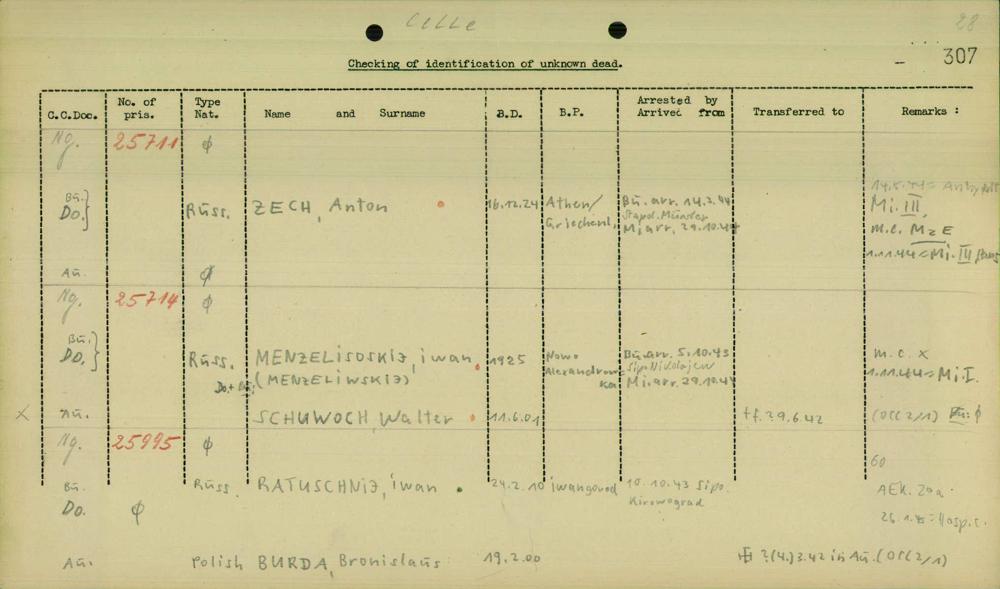 Celle
28
307
Checking of identification of unknown dead.
C.C.Doc. No. of pris. Type Nat. Name and Surname B.D. B.P. Arrested by Arrived from Transferred to Remarks :
Ng. 25711 ϕ
14.5.44 =
Bu. Do. } Russ. ZECH, Anton 16.12.24 Athen/ Griechenl. Bu. arr. 14.3.44 Stapol. Münster Mi arr. 29.10.44 Mi. III, m.c. MzE
1.11.44 = Mi. III
Au. ϕ
Ng. 25714 ϕ
Bu. Do. } Russ. MENZELISOSKIJ, iwan 1925 Nowo Alexandrowska Bu. arr. 5.10.43 Sipo Nikolajew Mi. arr. 29.10.44 m.c. x
Do. + Bu: (MENZELIWSKIJ) 1.11.44 = Mi. I.
X Au. SCHUWOCH, Walter 11.6.01 tf. 29.6.42 (OCC 2/1) Bu: ϕ
Ng. 25995 ϕ
60
Bu. Russ. RATUSCHNIJ, iwan 24.2.10 iwangorod 10.10.43 Sipo. Kirowograd AEK. 20a.
Do. ϕ 26.1.45 = Hosp.
Au. Polish BURDA, Bronislaus 19.2.00 ?(4.)3.42 in Au. (OCC 2/1)